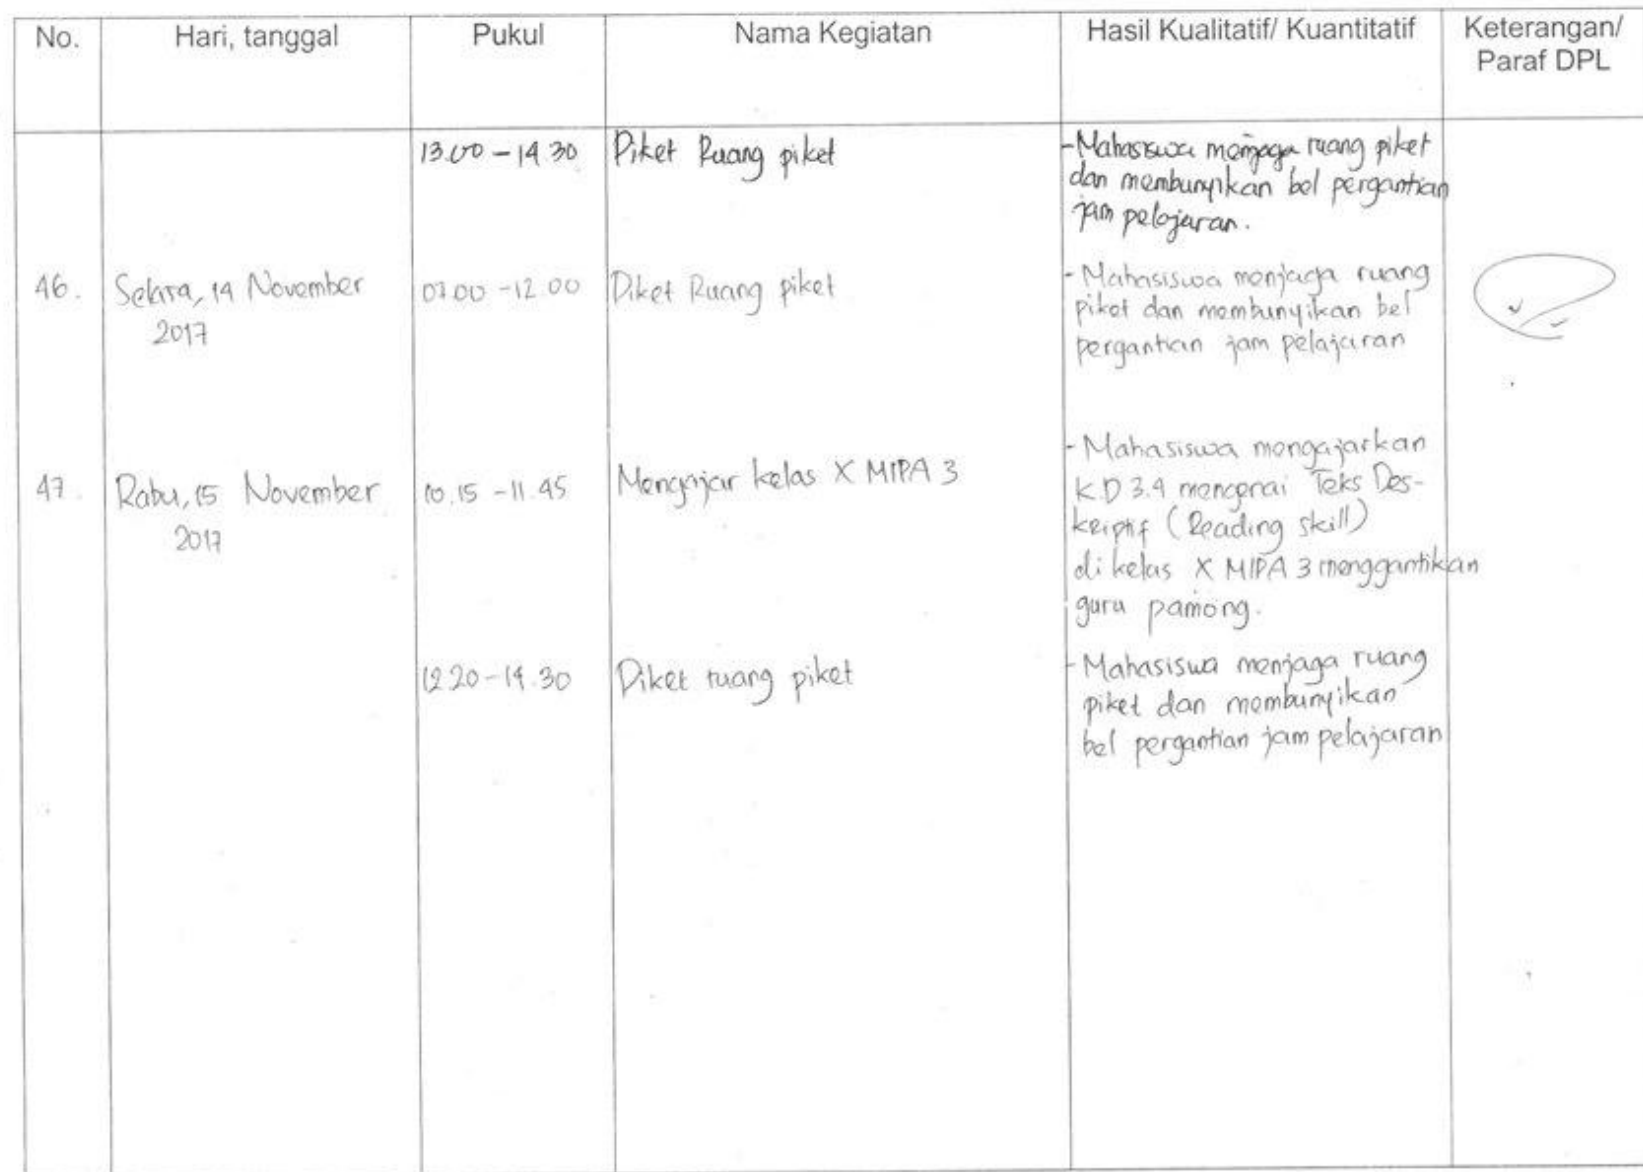 No. Hari, tanggal Pukul Nama Kegiatan Hasil Kualitatif/ Kuantitatif Keterangan/
Paraf DPL
13.00 - 14.30 Piket Ruang piket - Mahasiswa menjaga ruang piket
dan membunyikan bel pergantian
jam pelajaran.
46. Selasa, 14 November 07.00 - 12.00 Piket Ruang piket - Mahasiswa menjaga ruang
2017 piket dan membunyikan bel
pergantian jam pelajaran
47. Rabu, 15 November 10.15 - 11.45 Mengajar kelas X MIPA 3 - Mahasiswa mengajarkan
2017 K.D 3.4 mengenai Teks Des-
kriptif (Reading skill)
di kelas X MIPA 3 menggantikan
guru pamong.
12.20 - 14.30 Piket ruang piket - Mahasiswa menjaga ruang
piket dan membunyikan
bel pergantian jam pelajaran